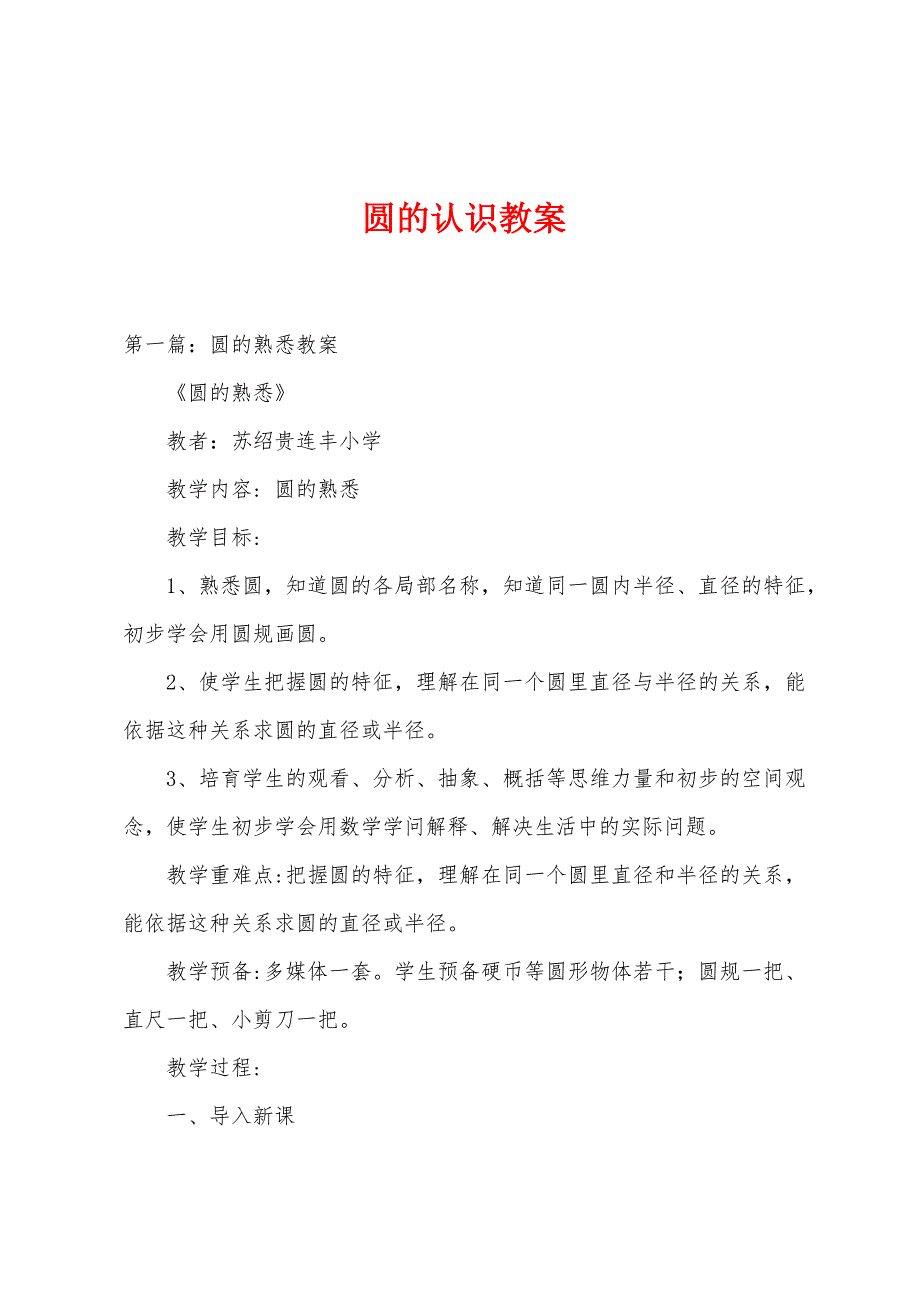 圆的认识教案
第一篇：圆的熟悉教案
《圆的熟悉》
教者：苏绍贵连丰小学
教学内容：圆的熟悉
教学目标：
1、熟悉圆，知道圆的各局部名称，知道同一圆内半径、直径的特征，
初步学会用圆规画圆。
2、使学生把握圆的特征，理解在同一个圆里直径与半径的关系，能
依据这种关系求圆的直径或半径。
3、培育学生的观看、分析、抽象、概括等思维力量和初步的空间观
念，使学生初步学会用数学学问解释、解决生活中的实际问题。
教学重难点:把握圆的特征，理解在同一个圆里直径和半径的关系，
能依据这种关系求圆的直径或半径。
教学预备:多媒体一套。学生预备硬币等圆形物体若干；圆规一把、
直尺一把、小剪刀一把。
教学过程:
一、导入新课